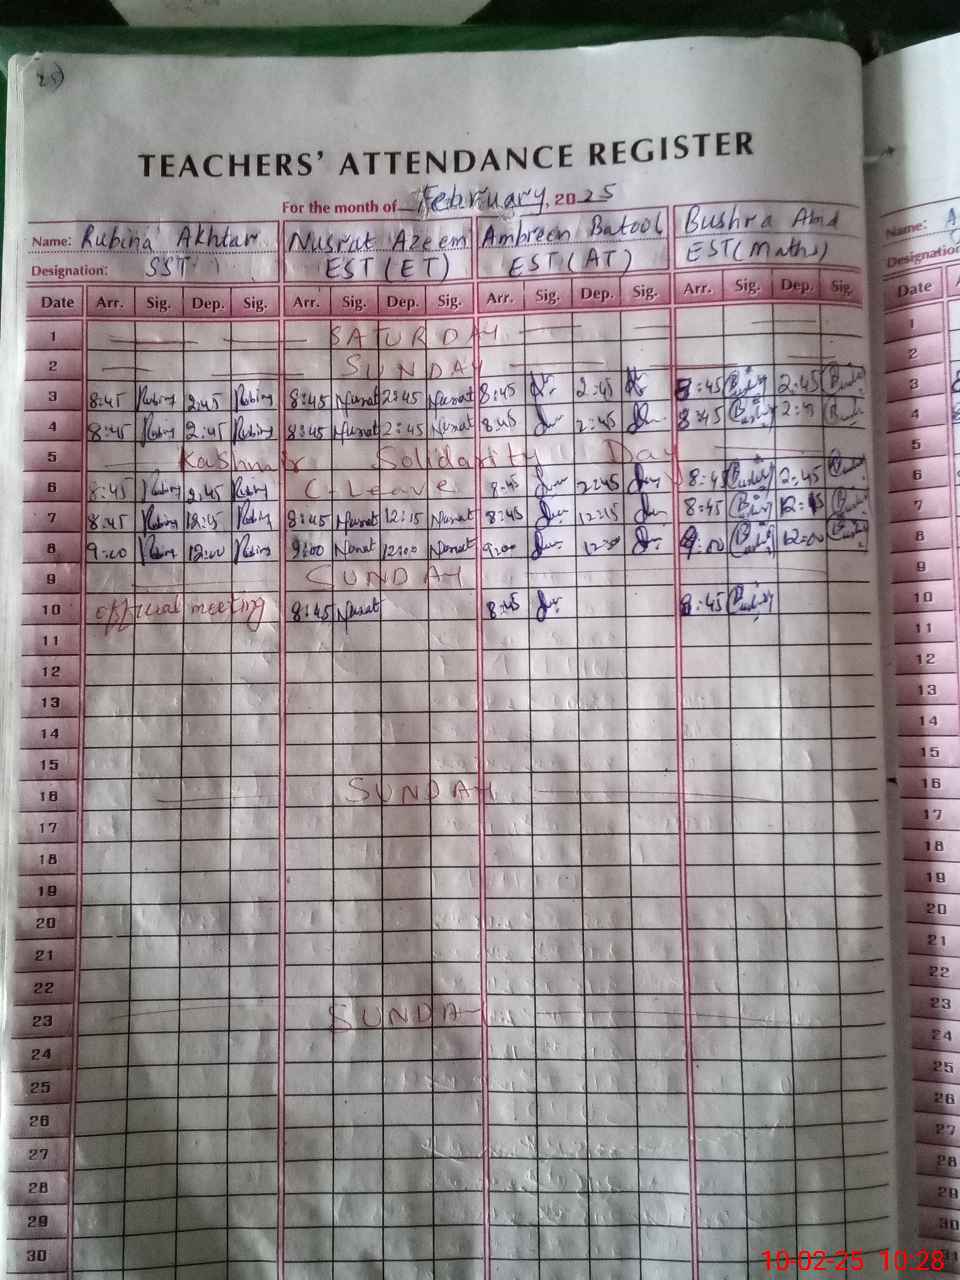 TEACHERS' ATTENDANCE REGISTER
For the month of February, 2025
Name: Rubina Akhtar Nusrat Azeem Ambreen Batool Bushra Name:
Designation: SST EST (ET) EST (AT) EST (Maths) Designation
Date Arr. Sig. Dep. Sig. Arr. Sig. Dep. Sig. Arr. Sig. Dep. Sig. Arr. Sig. Dep. Sig. Date
1 SATURDAY 1
2 SUNDAY 2
3 8:45 Rubina 2:45 Rubina 8:45 Nusrat 2:45 Nusrat 8:45 2:45 8:45 2:45 3
4 8:45 Rubina 2:45 Rubina 8:45 Nusrat 2:45 Nusrat 8:45 2:45 8:45 4
5 Kashmir Solidarity Day 5
6 8:45 Rubina 2:45 Rubina C-Leave 8:45 2:45 8:45 2:45 6
7 8:45 Rubina 12:15 Rubina 8:45 Nusrat 12:15 Nusrat 8:45 12:15 8:45 12:15 7
8 9:00 Rubina 12:00 Rubina 9:00 Nusrat 12:00 Nusrat 9:00 9:00 12:00 8
9 SUNDAY 9
10 official meeting 8:45 Nusrat 8:45 8:45 10
11 11
12 12
13 13
14 14
15 15
16 SUNDAY 16
17 17
18 18
19 19
20 20
21 21
22 22
23 SUNDAY 23
24 24
25 25
26 26
27 27
28 28
29 29
30 30
10-02-25 10:28